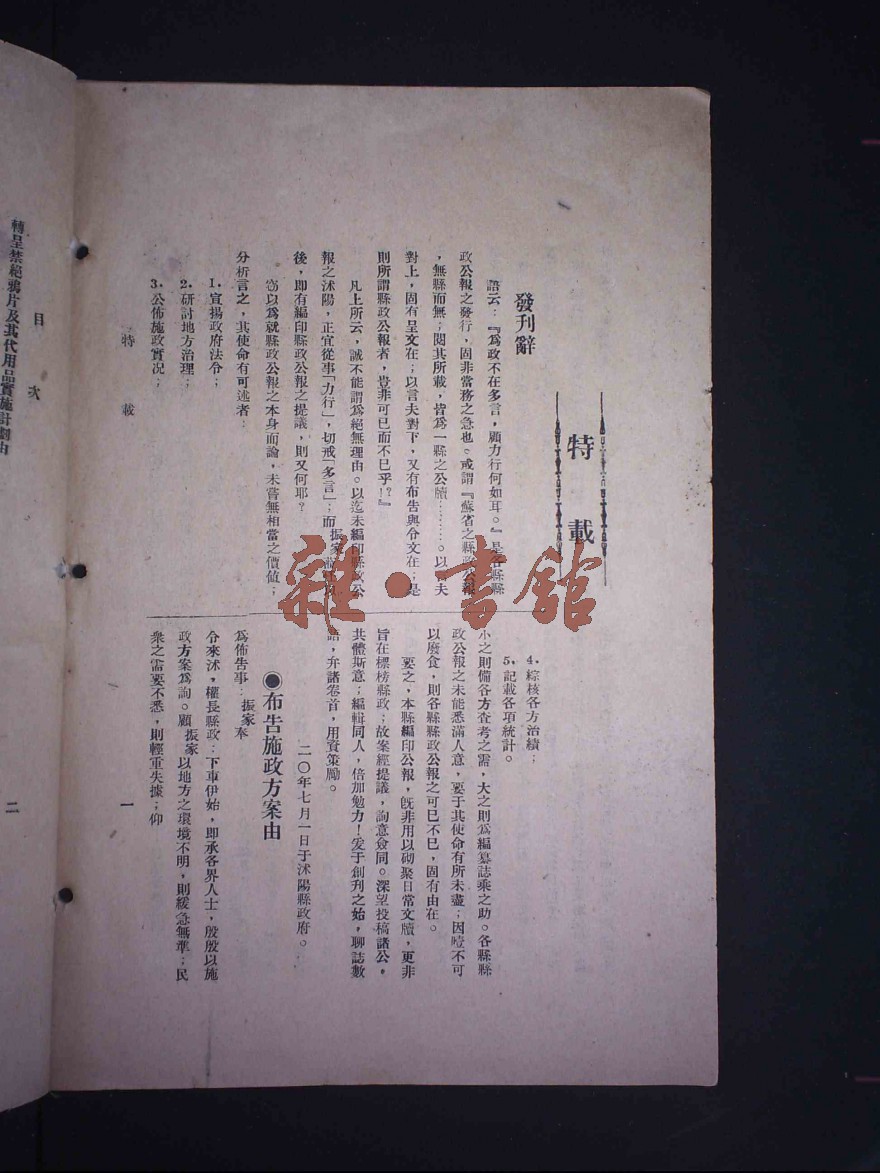 特載
發刊辭
語云：『爲政不在多言，顧力行何如耳。』是各縣縣
政公報之發行，固非當務之急也。或謂『蘇省之縣政公報
，無縣而無；閱其所載，皆爲一縣之公牘……。以言夫
對上，固有呈文在；以言夫對下，又有布告與令文在；是
則所謂縣政公報者，豈非可已而不已乎！？』
凡上所云，誠不能謂爲絕無理由。以迄未編印縣政公
報之沭陽，正宜從事「力行」，切戒「多言」；而振家
後，即有編印縣政公報之提議，則又何耶？
竊以爲就縣政公報之本身而論，未嘗無相當之價値；
分析言之，其使命有可述者：
1、宣揚政府法令；
2、研討地方治理；
3、公佈施政實况；
4、綜核各方治績；
5、記載各項統計。
小之則備各方查考之需，大之則爲編纂誌乘之助。各縣縣
政公報之未能悉滿人意，要于其使命有所未盡；因噎不可
以廢食，則各縣縣政公報之可已不已，固有由在。
要之，本縣編印公報，旣非用以砌聚日常文牘，更非
旨在標榜縣政；故案經提議，詢意僉同。深望投稿諸公，
共體斯意；編輯同人，倍加勉力！爰于創刋之始，聊誌數
語，弁諸卷首，用資策勵。
二〇年七月一日于沭陽縣政府。
●布告施政方案由
爲佈告事：振家奉
令來沭，權長縣政；下車伊始，即承各界人士，殷殷以施
政方案爲詢。顧振家以地方之環境不明，則緩急無準；民
衆之需要不悉，則輕重失據；仰
特載
一
目次
轉呈禁絕鴉片及其代用品實施計劃由
二
雜·書館